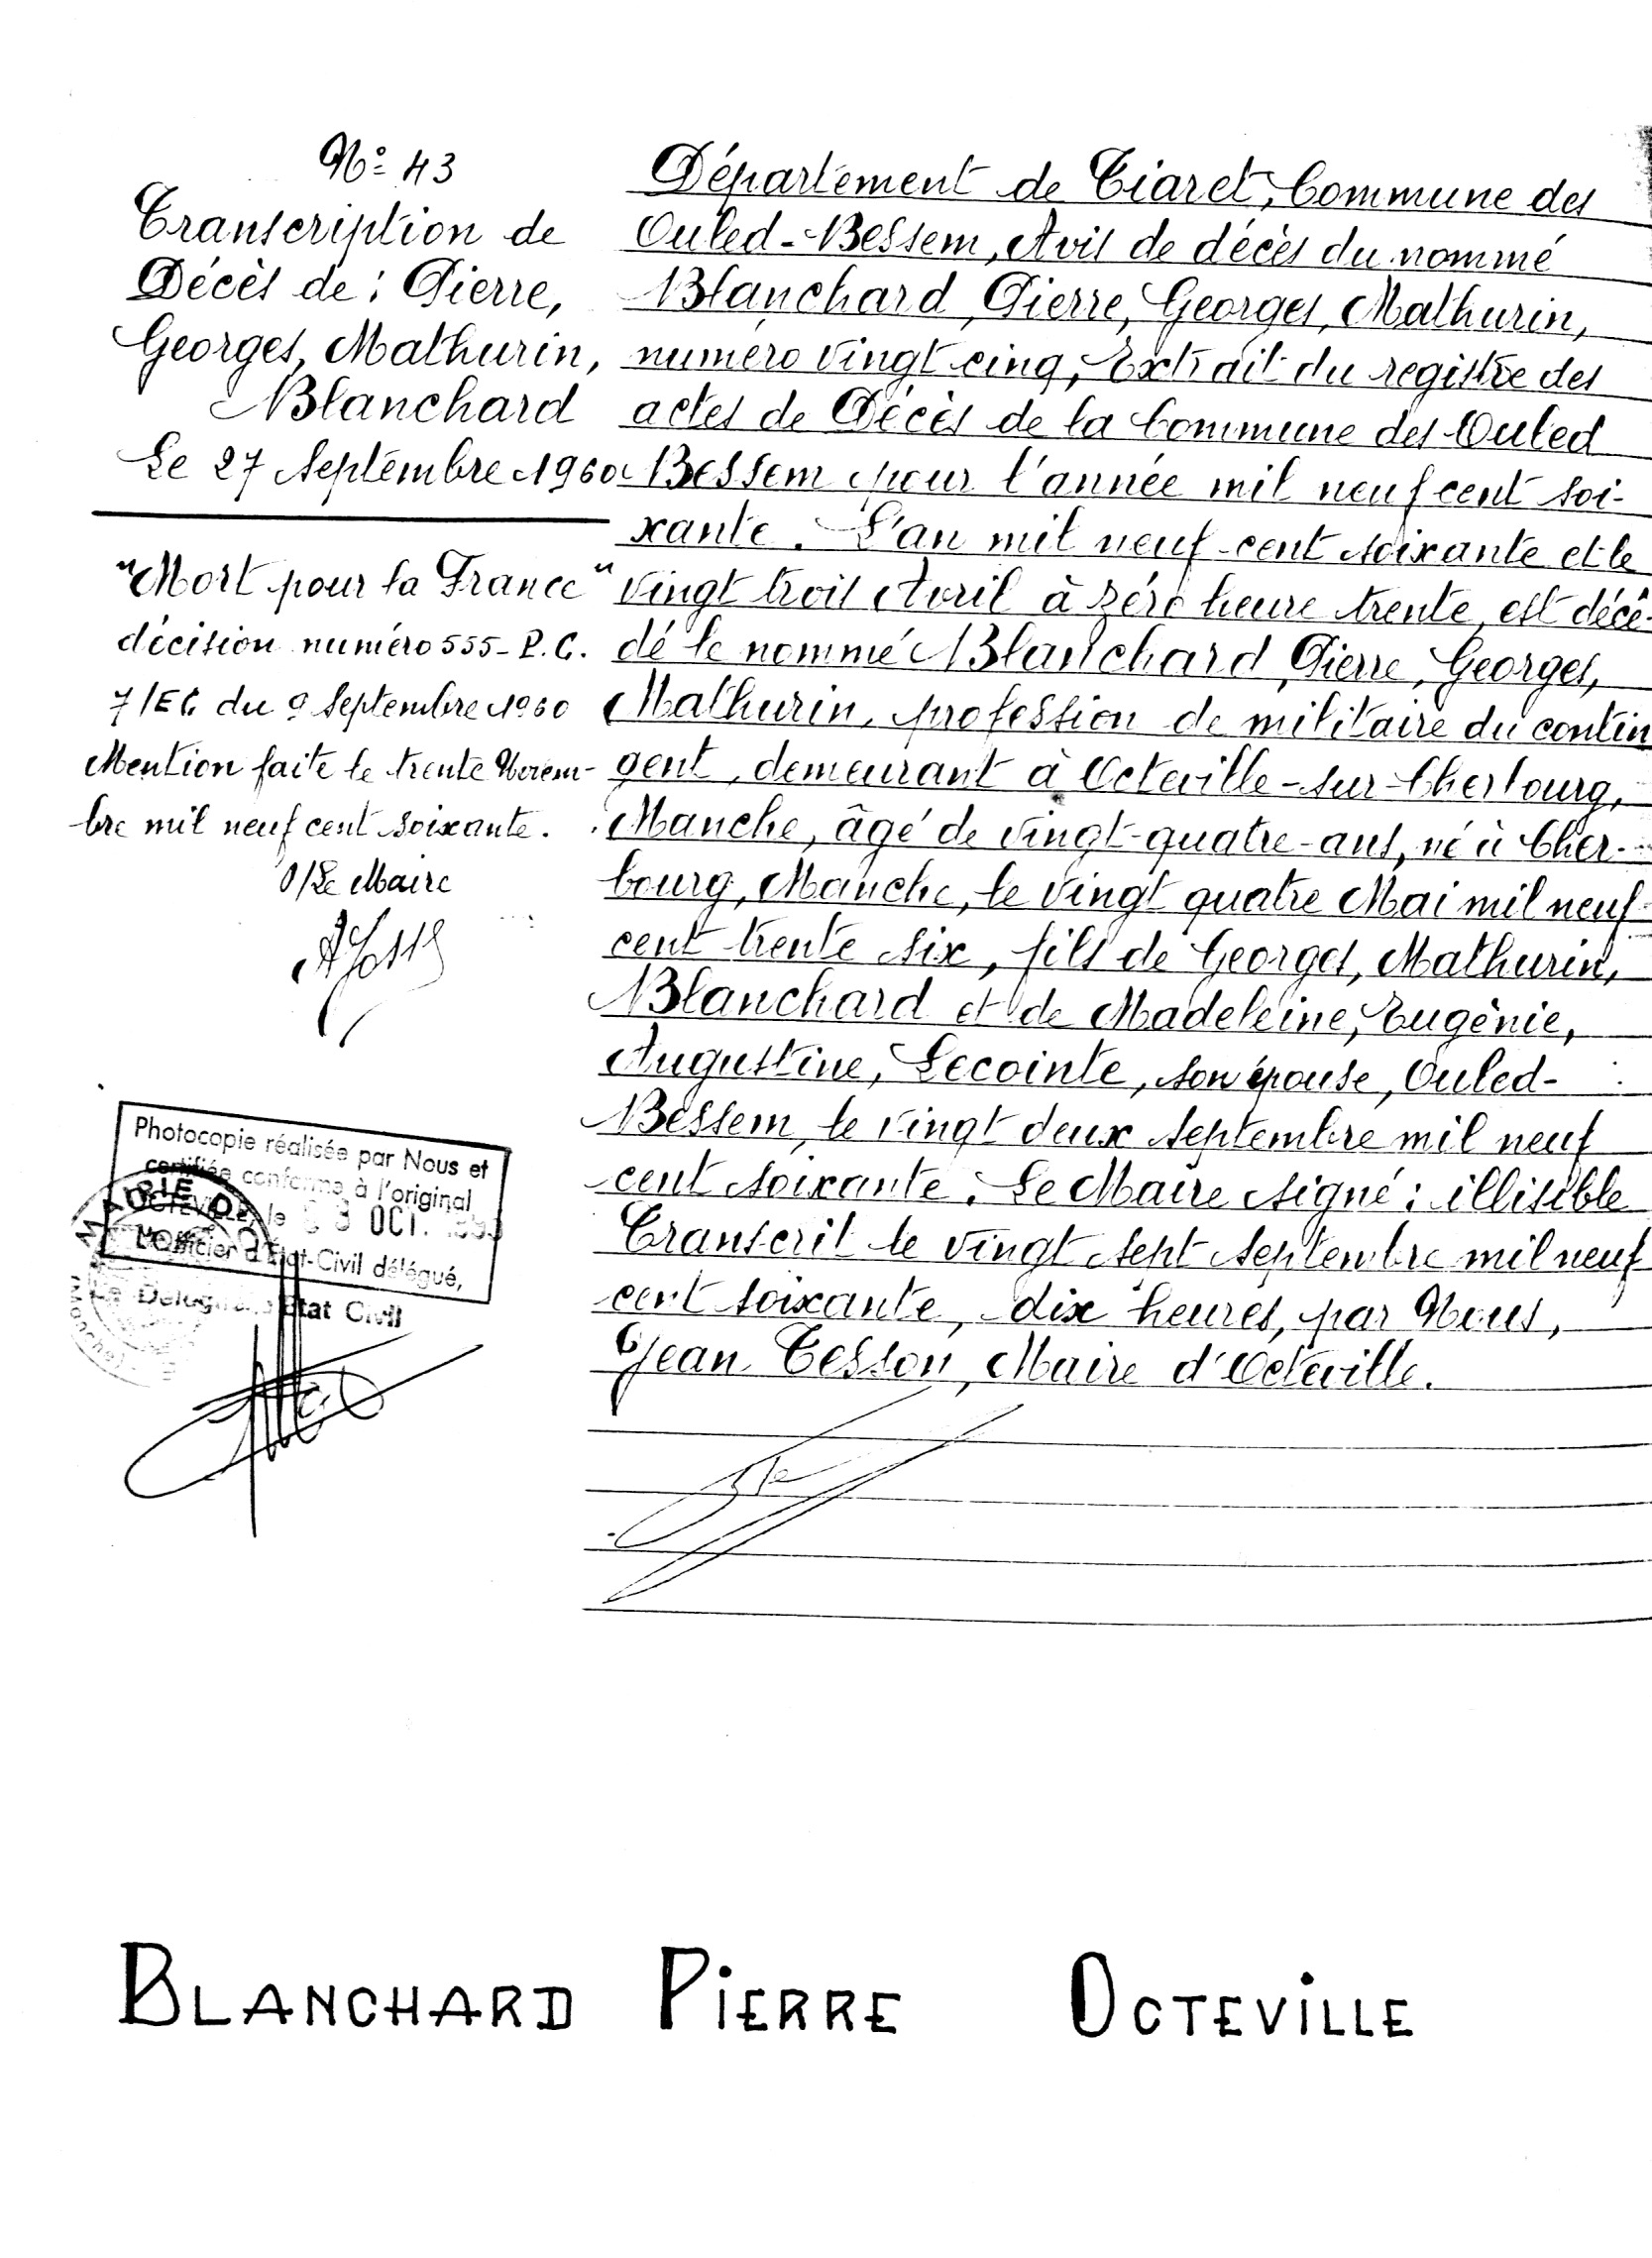 Nº 43
Transcription de
Décès de : Pierre,
Georges, Mathurin,
Blanchard
Le 27 Septembre 1960
"Mort pour la France"
décision numéro 555-P.C.
7/EC du 9 Septembre 1960
Mention faite le trente Novem-
bre mil neuf cent soixante.
P/Le Maire
Département de Tiaret, Commune des
Ouled-Bessem, Avis de décès du nommé
Blanchard, Pierre, Georges, Mathurin,
numéro vingt cinq, Extrait du registre des
actes de Décès de la Commune des Ouled
Bessem pour l'année mil neuf cent soi-
xante. L'an mil neuf-cent soixante et le
vingt trois Avril à zéro heure trente, est décé-
dé le nommé Blanchard, Pierre, Georges,
Mathurin, profession de militaire du contin
gent, demeurant à Octeville-sur-Cherbourg,
Manche, âgé de vingt-quatre-ans, né à Cher-
bourg, Manche, le vingt quatre Mai mil neuf-
cent trente six, fils de Georges, Mathurin,
Blanchard et de Madeleine, Eugénie,
Augustine, Lecointe, son épouse, Ouled-
Bessem, le vingt deux septembre mil neuf
cent soixante. Le Maire signé : illisible
Transcrit le vingt sept septembre mil neuf
cent soixante, dix heures, par Nous,
Jean Tesson, Maire d'Octeville.
Photocopie réalisée par Nous et
certifiée conforme à l'original
OCTEVILLE, le 3 OCT.
L'Officier d'Etat-Civil délégué,
MAIRIE D'
Etat Civil
(Manche)
BLANCHARD PIERRE OCTEVILLE